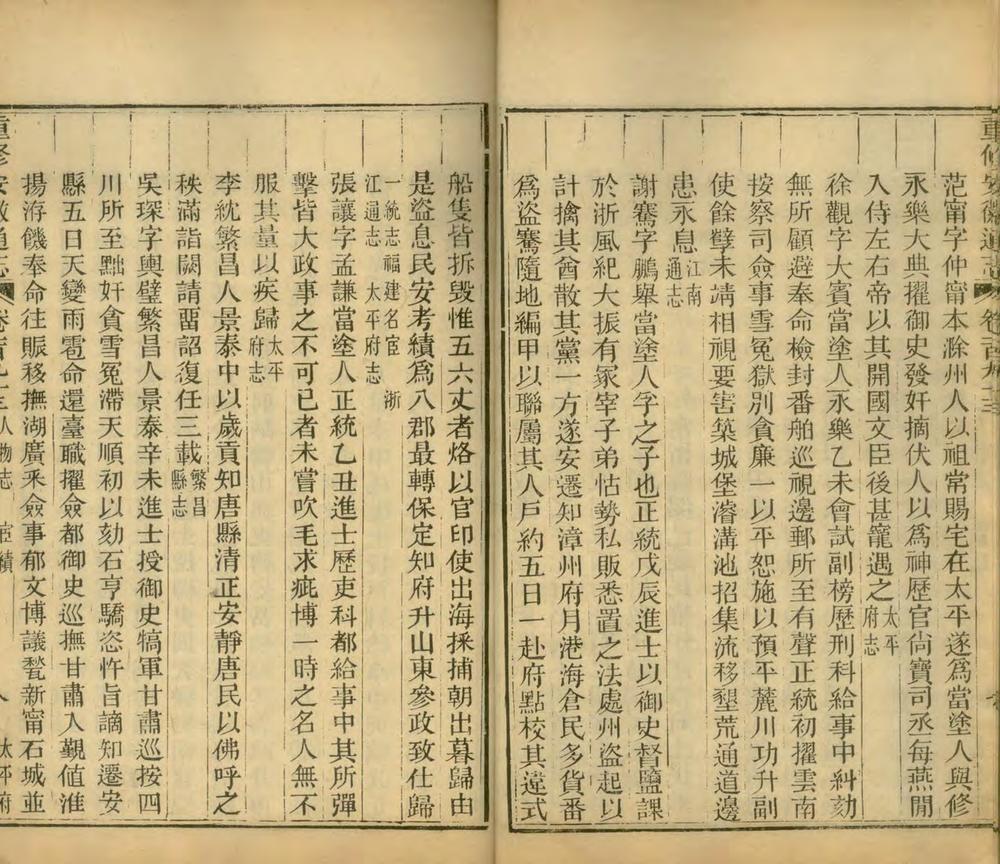 重修安徽通志
范甯字仲甯本滁州人以祖常賜宅在太平遂爲當塗人與修
永樂大典擢御史發奸摘伏人以爲神歷官尙寶司丞每燕閒
入侍左右帝以其開國文臣後甚寵遇之太平府志
徐觀字大賓當塗人永樂乙未會試副榜歷刑科給事中糾劾
無所顧避奉命檢封番舶巡視邊郵所至有聲正統初擢雲南
按察司僉事雪冤獄別貪廉一以平恕施以預平麓川功升副
使餘孽未靖相視要害築城堡濬溝池招集流移墾荒通道邊
患永息江南通志
謝騫字鵬舉當塗人孚之子也正統戊辰進士以御史督鹽課
於浙風紀大振有冢宰子弟怙勢私販悉置之法處州盜起以
計擒其酋散其黨一方遂安遷知漳州府月港海倉民多貨番
爲盜騫隨地編甲以聯屬其人戶約五日一赴府點校其違式
船隻皆拆毀惟五六丈者烙以官印使出海採捕朝出暮歸由
是盜息民安考績爲八郡最轉保定知府升山東參政致仕歸
一統志 福建名宦 浙江通志 太平府志
張讓字孟謙當塗人正統乙丑進士歷吏科都給事中其所彈
擊皆大政事之不可已者未嘗吹毛求疵博一時之名人無不
服其量以疾歸太平府志
李紞繁昌人景泰中以歲貢知唐縣清正安靜唐民以佛呼之
秩滿詣闕請留詔復任三載繁昌縣志
吳琛字輿璧繁昌人景泰辛未進士授御史犒軍甘肅巡按四
川所至黜奸貪雪冤滯天順初以劾石亨驕恣忤旨謫知遷安
縣五日天變雨雹命還臺職擢僉都御史巡撫甘肅入覲値淮
揚洊饑奉命往賑移撫湖廣釆僉事郁文博議甃新甯石城並
重修安徽通志 人物志 宦績 八 太平府